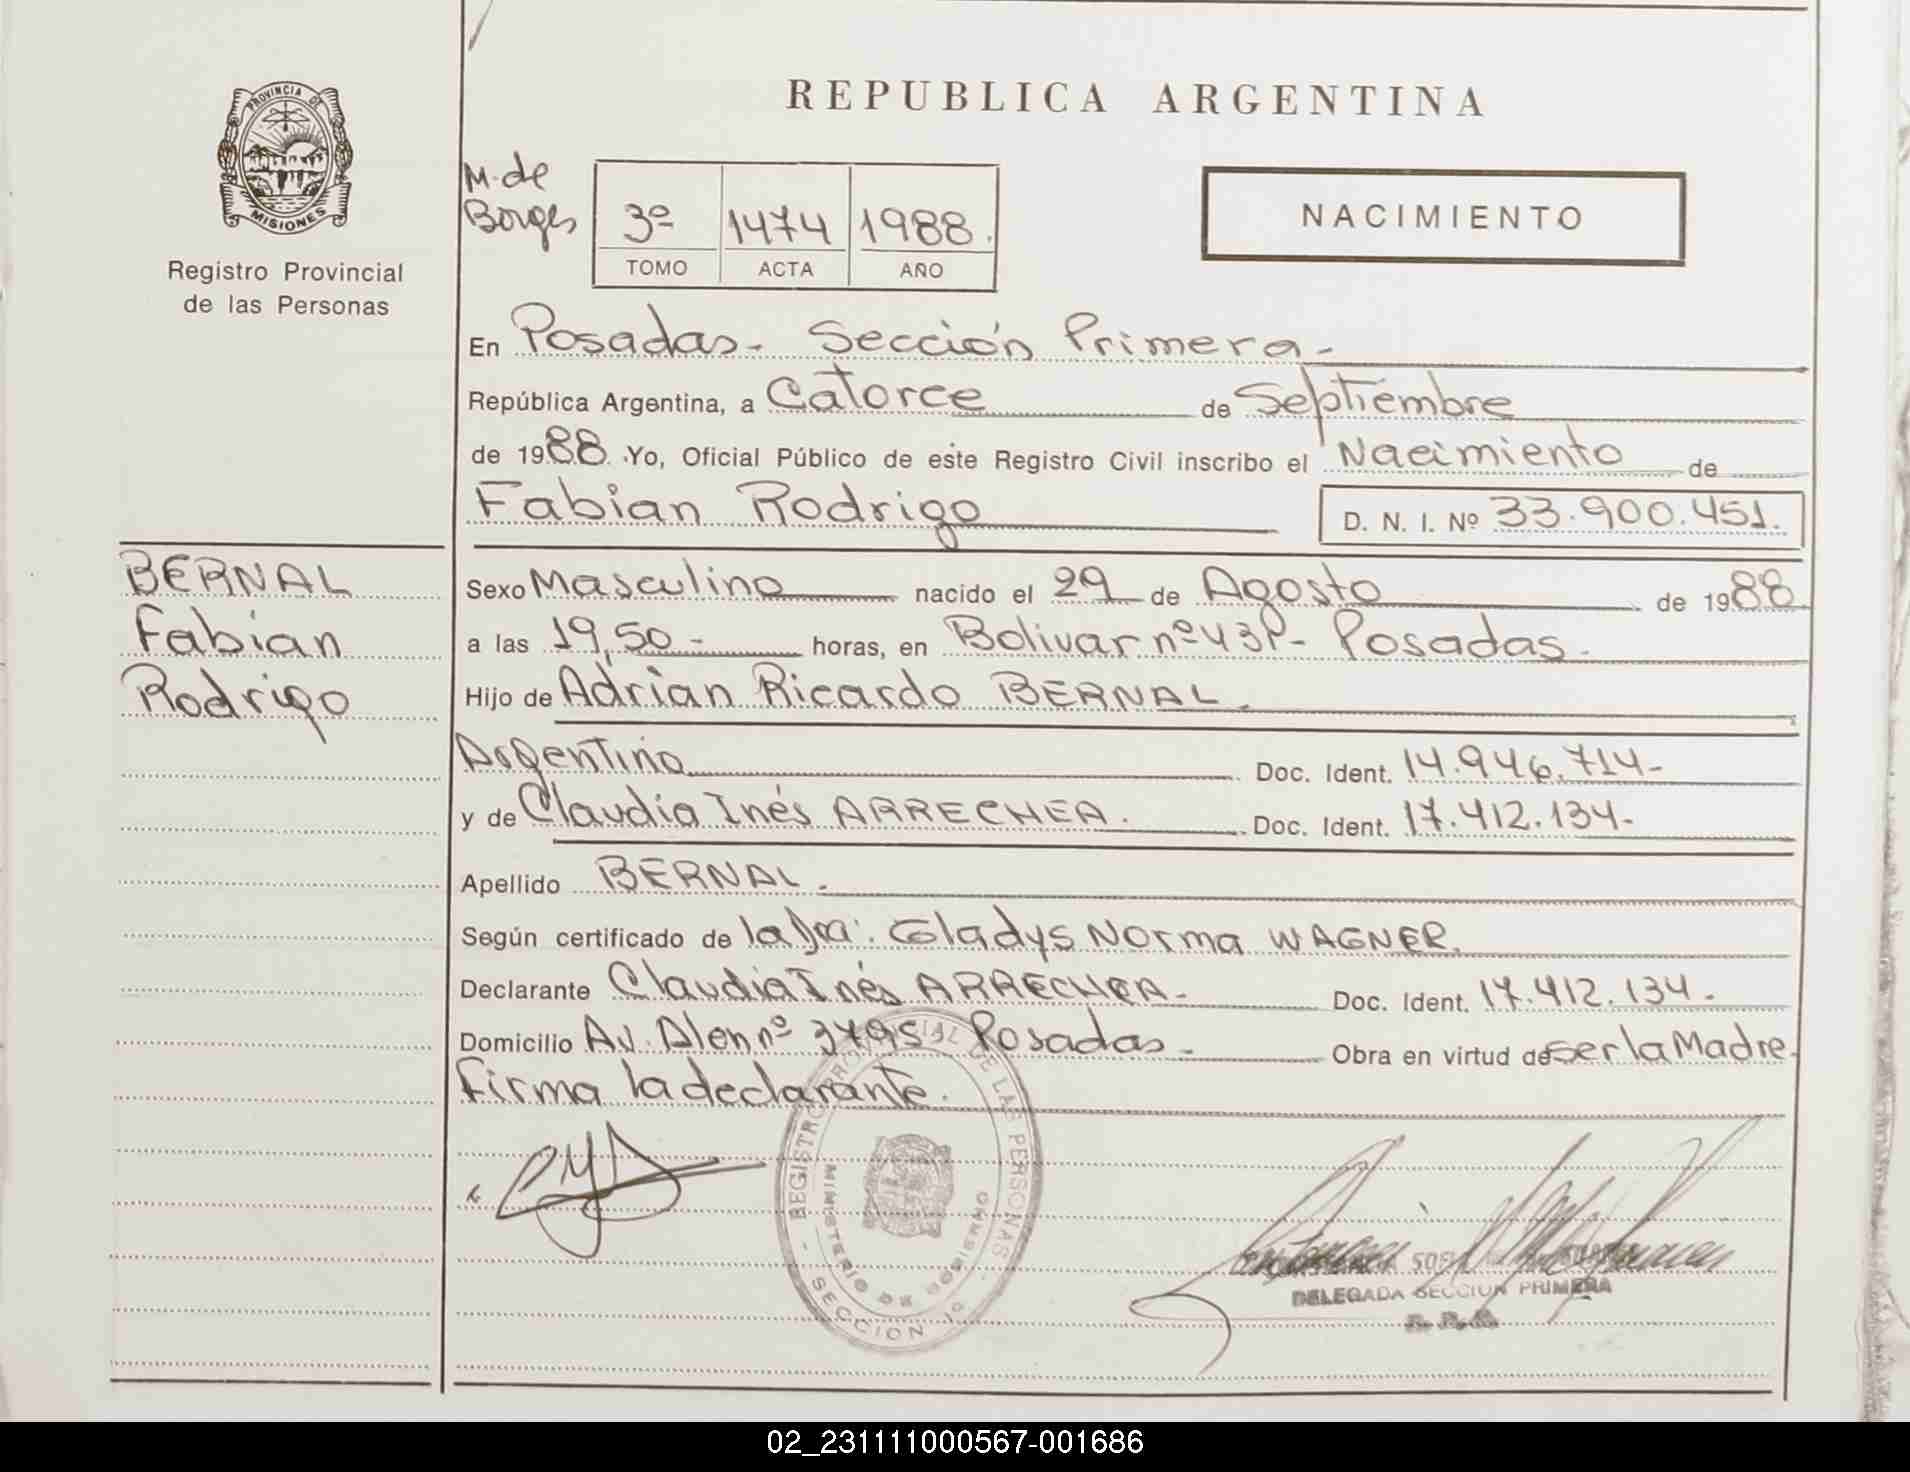 PROVINCIA DE
MISIONES
Registro Provincial
de las Personas
REPUBLICA ARGENTINA
M. de
Borges
3º 1474 1988.
TOMO ACTA AÑO
NACIMIENTO
En Posadas - Sección Primera -
República Argentina, a Catorce de Septiembre
de 1988. Yo, Oficial Público de este Registro Civil inscribo el Nacimiento de
Fabian Rodrigo D. N. I. Nº 33.900.451.
BERNAL
Fabian
Rodrigo
Sexo Masculino nacido el 29 de Agosto de 1988
a las 19,50 - horas, en Bolivar nº Posadas.
Hijo de Adrian Ricardo BERNAL.
Argentino Doc. Ident. 14.946.714-
y de Claudia Inés ARRECHEA. Doc. Ident. 17.412.134-
Apellido BERNAL.
Según certificado de la Dra: Gladys Norma WAGNER.
Declarante Claudia Inés ARRECHEA - Doc. Ident. 17.412.134.
Domicilio Av. Alem nº Posadas - Obra en virtud de ser la Madre.
Firma la declarante.
REGISTRO PROVINCIAL DE LAS PERSONAS -
MINISTERIO DE GOBIERNO
SECCION 1º
DELEGADA SECCION PRIMERA
02_231111000567-001686